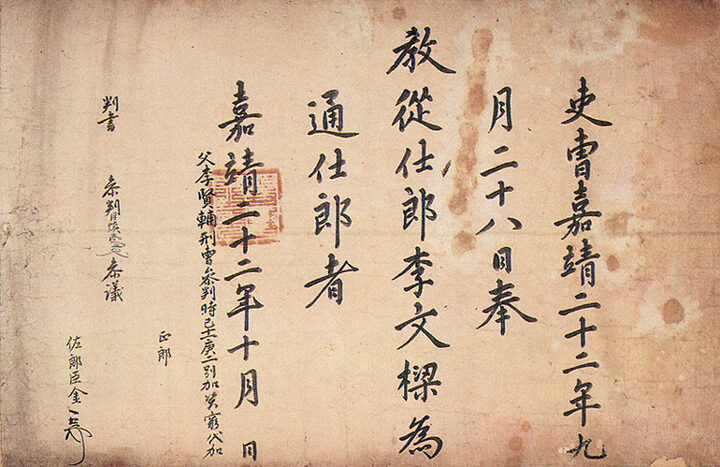 吏曹嘉靖二十二年九
月二十八日奉
教從仕郎李文樑為
通仕郎者
嘉靖二十二年十月 日
父李賢輔刑曹參判時己上庚二別加資窮代加
正郎
佐郎臣金
判書 參判 參議